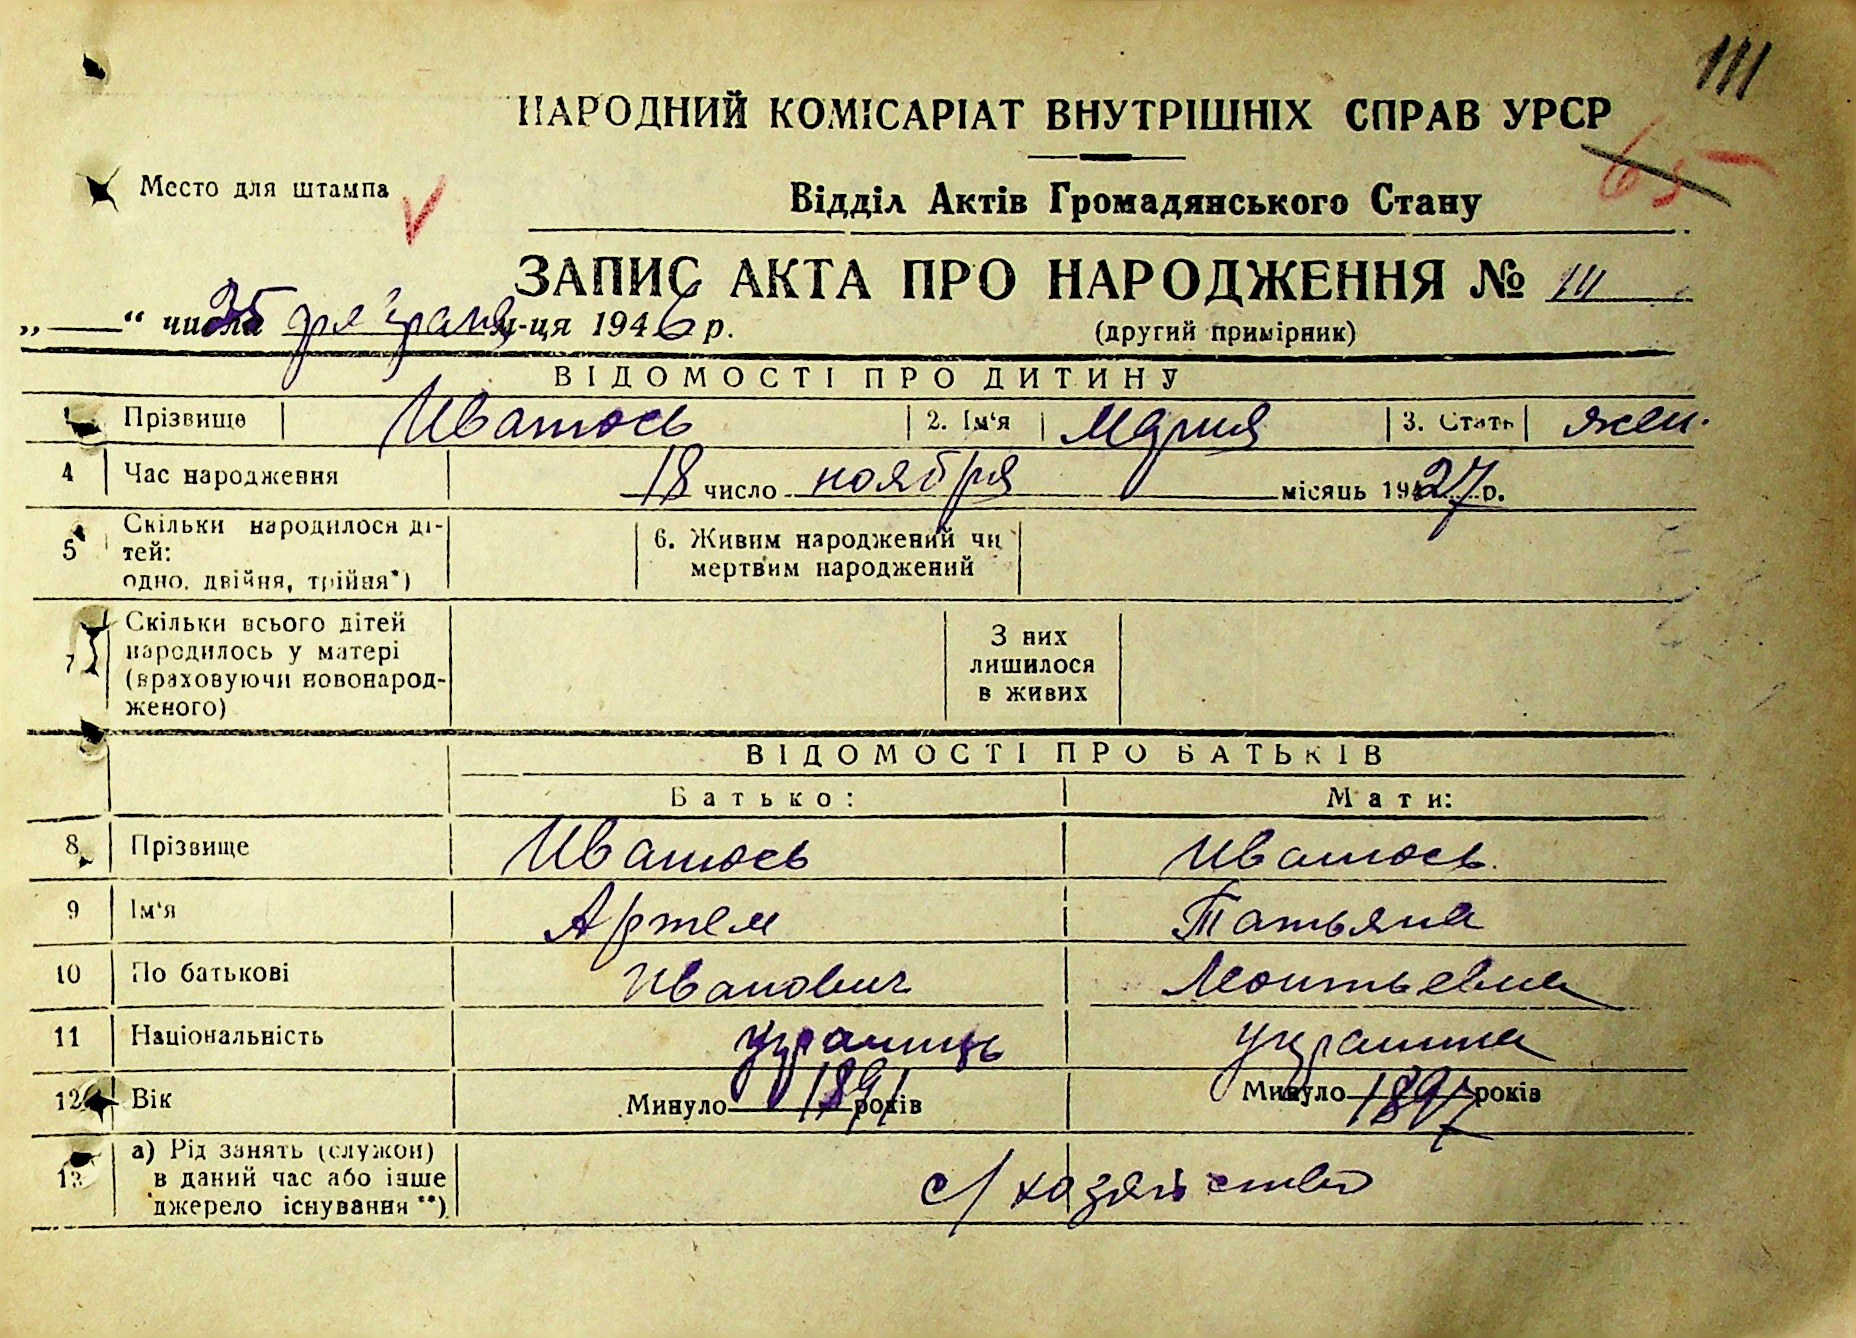 111
НАРОДНИЙ КОМІСАРІАТ ВНУТРІШНІХ СПРАВ УРСР
65
Место для штампа
Відділ Актів Громадянського Стану
ЗАПИС АКТА ПРО НАРОДЖЕННЯ № 111
„ “ числа 25 февраля м-ця 1946 р.
(другий примірник)
ВІДОМОСТІ ПРО ДИТИНУ
1 Прізвище Иватюсь 2. Ім‘я Мария 3. Стать жен.
4 Час народження 18 число ноября місяць 1927 р.
5 Скільки народилося ді-
тей:
одно, двійня, трійня*)
6. Живим народжений чи
мертвим народжений
7 Скільки всього дітей
народилось у матері
(враховуючи новонарод-
женого)
З них
лишилося
в живих
ВІДОМОСТІ ПРО БАТЬКІВ
Батько: Мати:
8 Прізвище Иватюсь Иватюсь
9 Ім‘я Артем Татьяна
10 По батькові Иванович Леонтьевна
11 Національність украинць украинка
12 Вік Минуло 1891 років Минуло 1897 років
13 а) Рід занять (служби)
в даний час або інше
джерело існування **)
с/хазяйство